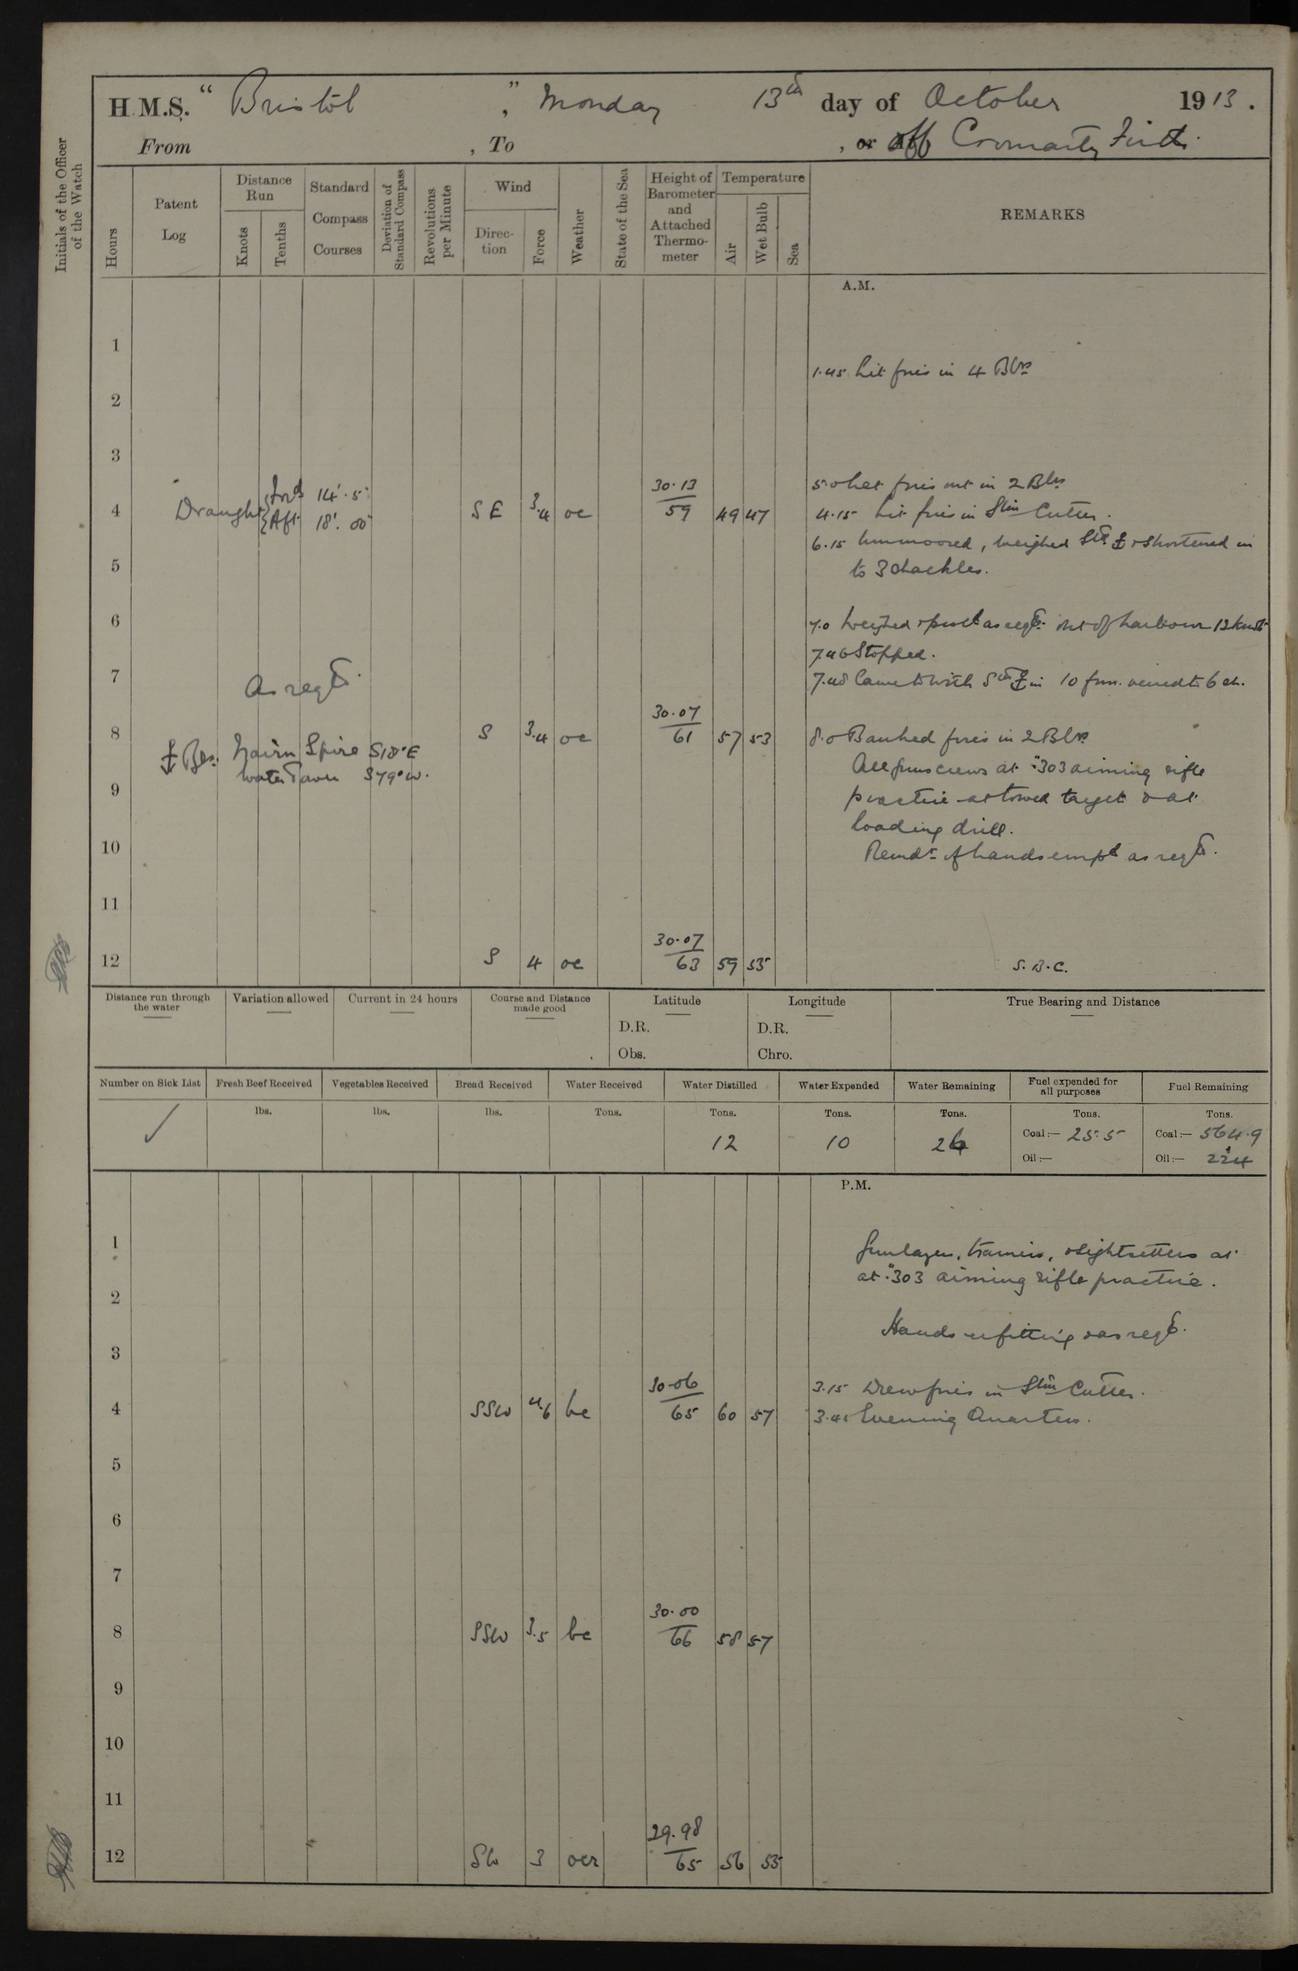 H.M.S. "Bristol", Monday 13th day of October 1913.
From , To , or off Cromarty Firth.
Initials of the Officer of the Watch
Hours
Patent Log
Distance Run
Knots
Tenths
Standard Compass Courses
Deviation of Standard Compass
Revolutions per Minute
Wind
Direction
Force
Weather
State of the Sea
Height of Barometer and Attached Thermometer
Temperature
Air
Wet Bulb
Sea
REMARKS
A.M.
1
1.45 Lit fires in 4 Blrs
2
3
Draught { Ford 14'. 5"
{ Aft 18'. 00"
4 SE 3.4 oc 30.13/59 49 47
5.0 Let fires out in 2 Blrs
4.15 Lit fires in Stm Cutter.
6.15 Unmoored, weighed & shortened in
to 3 shackles.
5
6
7.0 Weighed & procd as reqd: out of harbour 12 knots
7.46 Stopped.
7 As reqd.
7.48 Came to with in 10 fms. veered to 6 sh.
8 S 3.4 oc 30.07/61 57 53
8.0 Banked fires in 2 Blrs
Bgs. Nairn Spire S18°E
Water Tower S79°W.
All guns crews at .303 aiming rifle
9
practice at towed target & at
loading drill.
10
Remdr of hands empd as reqd.
11
12 S 4 oc 30.07/63 59 55
S.B.C.
Distance run through the water
Variation allowed
Current in 24 hours
Course and Distance made good
Latitude
D.R.
Obs.
Longitude
D.R.
Chro.
True Bearing and Distance
Number on Sick List
Fresh Beef Received
Vegetables Received
Bread Received
Water Received
Water Distilled
Water Expended
Water Remaining
Fuel expended for all purposes
Fuel Remaining
lbs. lbs. lbs. Tons. Tons. Tons. Tons. Tons. Tons.
✓ 12 10 26
Coal:— 25.5 Coal:— 564.9
Oil:— Oil:— 224
P.M.
1
Gunlayers, trainers, & sightsetters at
at .303 aiming rifle practice.
2
Hands refitting & as reqd.
3
3.15 Drew fires in Stm Cutter.
4 SSW 4.6 bc 30.06/65 60 57
3.45 Evening Quarters.
5
6
7
8 SSW 3.5 bc 30.00/66 58 57
9
10
11
12 SW 3 ocr 29.98/65 56 55